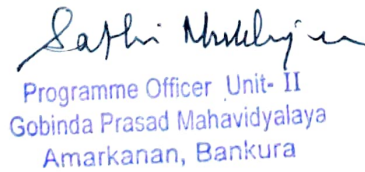 Sathi Mukherjee
Programme Officer Unit- II
Gobinda Prasad Mahavidyalaya
Amarkanan, Bankura